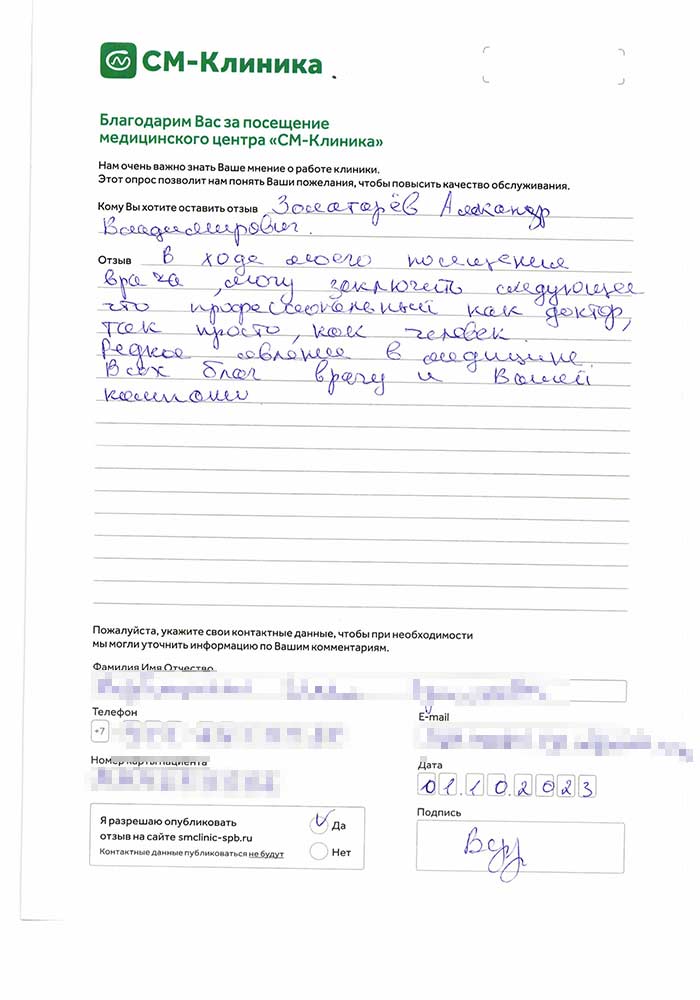 СМ-Клиника
Благодарим Вас за посещение
медицинского центра «СМ-Клиника»
Нам очень важно знать Ваше мнение о работе клиники.
Этот опрос позволит нам понять Ваши пожелания, чтобы повысить качество обслуживания.
Кому Вы хотите оставить отзыв Золотарёв Александр
Владимирович.
Отзыв В ходе моего посещения
врача, могу заключить следующее
что профессиональный как доктор,
так просто, как человек.
Редкое явление в медицине.
Всех благ врачу и Вашей
компании
Пожалуйста, укажите свои контактные данные, чтобы при необходимости
мы могли уточнить информацию по Вашим комментариям.
Фамилия Имя Отчество
Телефон E-mail
+7
Номер карты пациента Дата
01.10.2023
Я разрешаю опубликовать
отзыв на сайте smclinic-spb.ru
Контактные данные публиковаться не будут
Да
Нет
Подпись